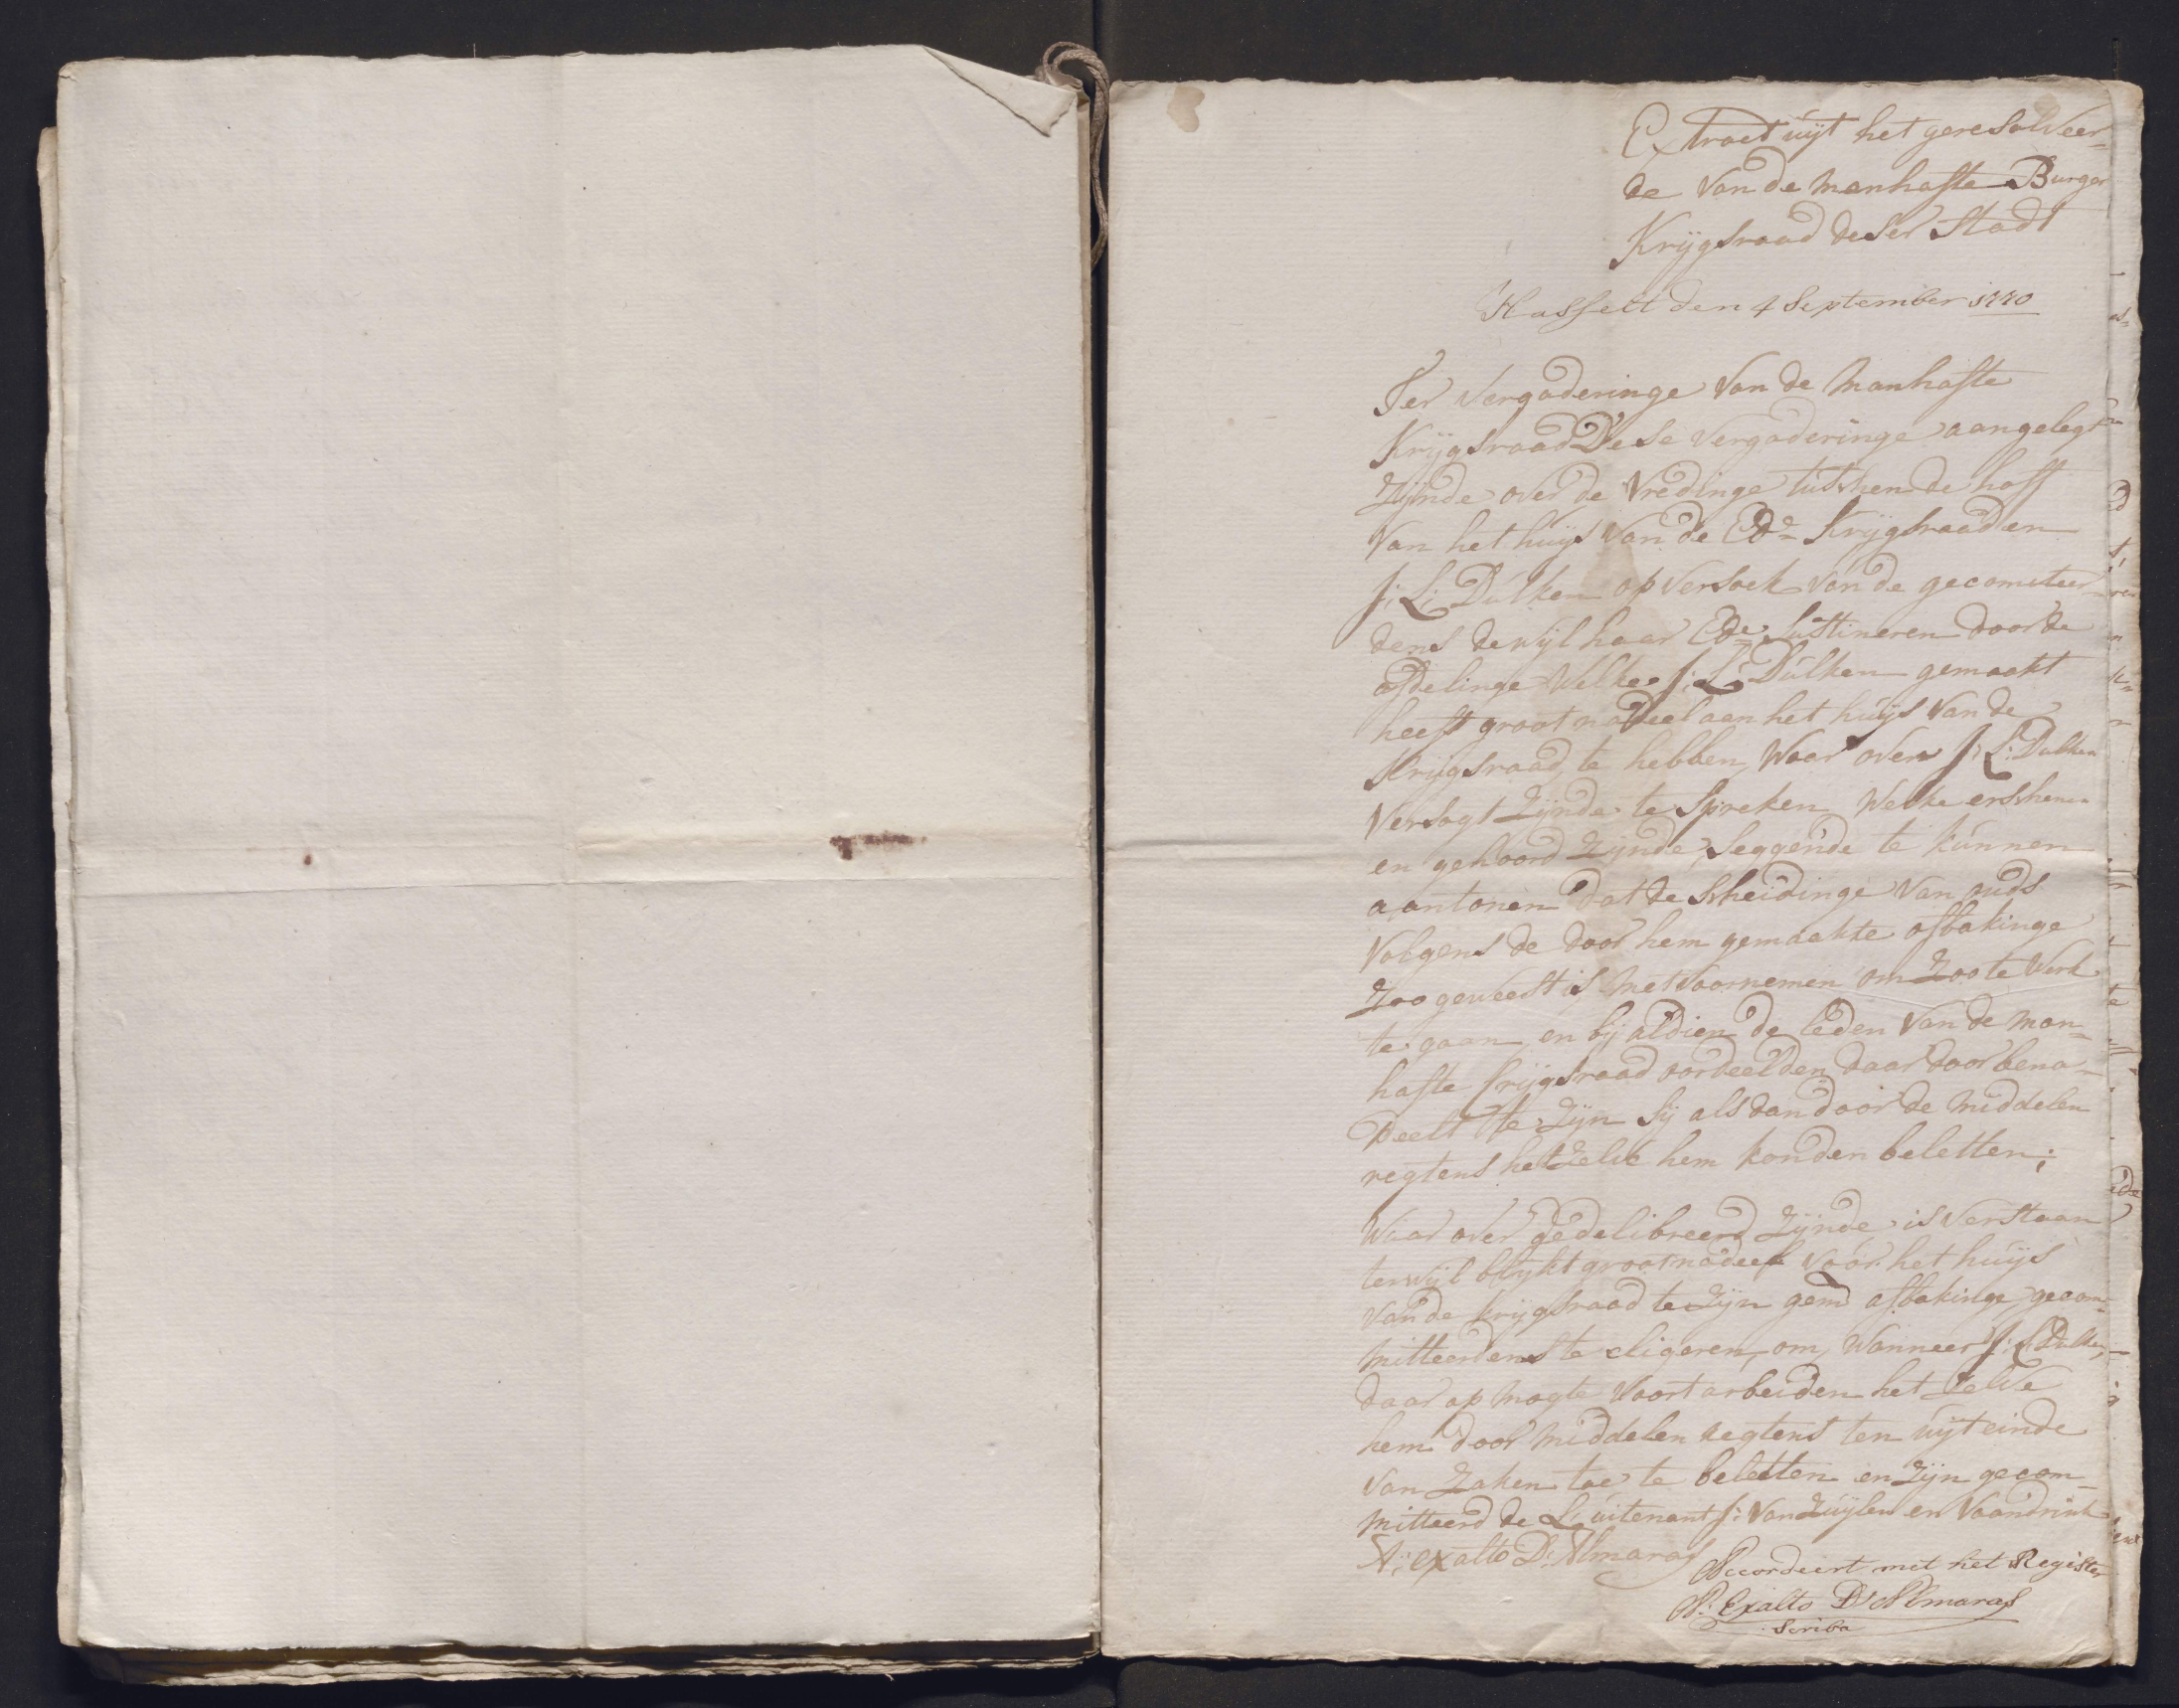 Extract uijt het geresolveer=
de van de manhafte Burger
Krijgsraad deser Stadt
Hasselt den 4 September 1770
Ter Vergaderinge van de Manhafte
Krijgsraad Dese Vergaderinge aangelegt
Zijnde over de Vredinge tusschen de hoff
van het huijs van de Ede Krijgsraad en
J: L: Dulken op versoek van de gecomiteer=
dens dewijl haar Ede sustineren door de
afdelinge welke J: L: Dulken gemaakt
heeft groot nadeel aen het huijs van de
Krijgsraad te hebben, waar over J: L: Dulken
versogt Zijnde te spreken welke erscheenen
en gehoord Zijnde, seggende te kunnen
aantonen dat de scheidinge van ouds
volgens de door hem gemaakte afbakinge
Zoo geweest is met voornemen om Zoo te werk
te gaan en bij aldien de leden van de man=
hafte krijgsraad oordeelden daar door bena=
deelt te Zijn sij als dan door de middelen
regtens het Zelve hem konden beletten;
Waar over gedelibreerd Zijnde is verstaan
terwijl blijkt groot nadeel voor het huijs
van de krijgsraad te Zijn gemd afbakinge, gecom=
mitteerdens te eligeren, om, wanneer J: L: Dulken,
daar op mogte voort arbeiden het Zelve
hem door middelen regtens ten uijteinde
van Zaken toe te beletten en Zijn gecom=
mitteerd de Luitenant J: van Zuijlen en Vaandrink
A: exalto D: Almaras
Accordeert met het Register
A: Exalto D'Almaras
Scriba